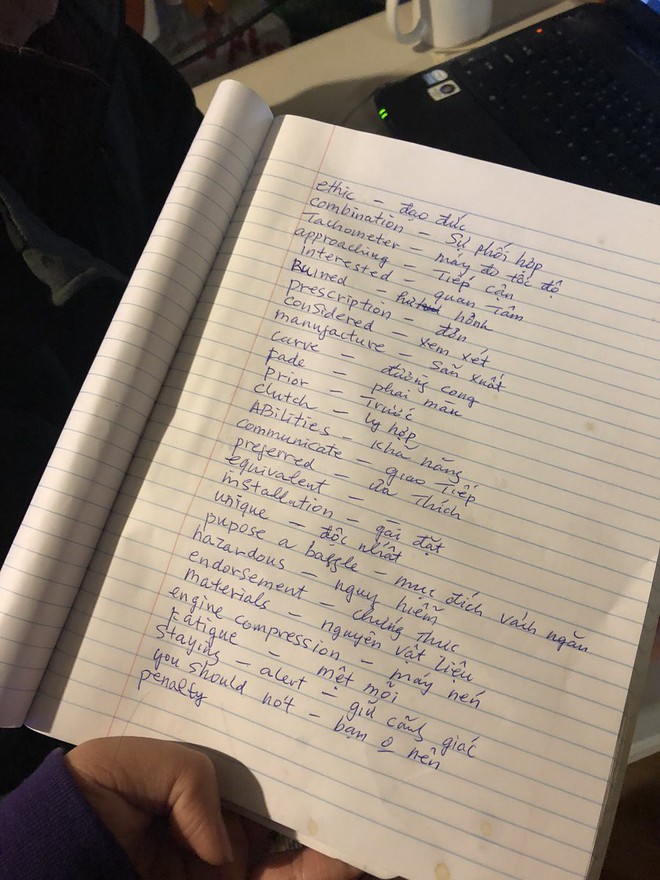 ethic - đạo đức
combination - Sự phối hợp
Tachometer - máy đo tốc độ
approaching - Tiếp cận
Interested - quan Tâm
Ruined - hỏnh
prescription - đơn
considered - xem xét
manufacture - sãn xuất
curve - đường cong
Fade - phai màu
prior - Trước
clutch - ly hợp
ABilities - khả năng
communicate - giao Tiếp
preferred - ưa Thích
equivalent -
installation - gài đặt
unique - độc nhất
pupose a baffle - mục đích vách ngăn
hazardous - nguy hiễm
endorsement - chứng thực
materials - nguyên vật liệu
engine compression - máy nén
Fatigue - mệt mỏi
Staying - alert - giữ cãng giác
you should not - bạn o nên
penalty